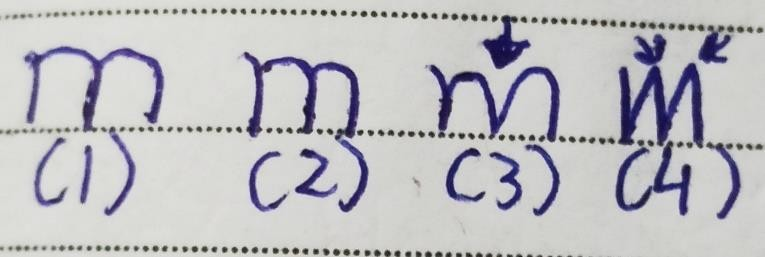 m m m m
(1) (2) (3) (4)